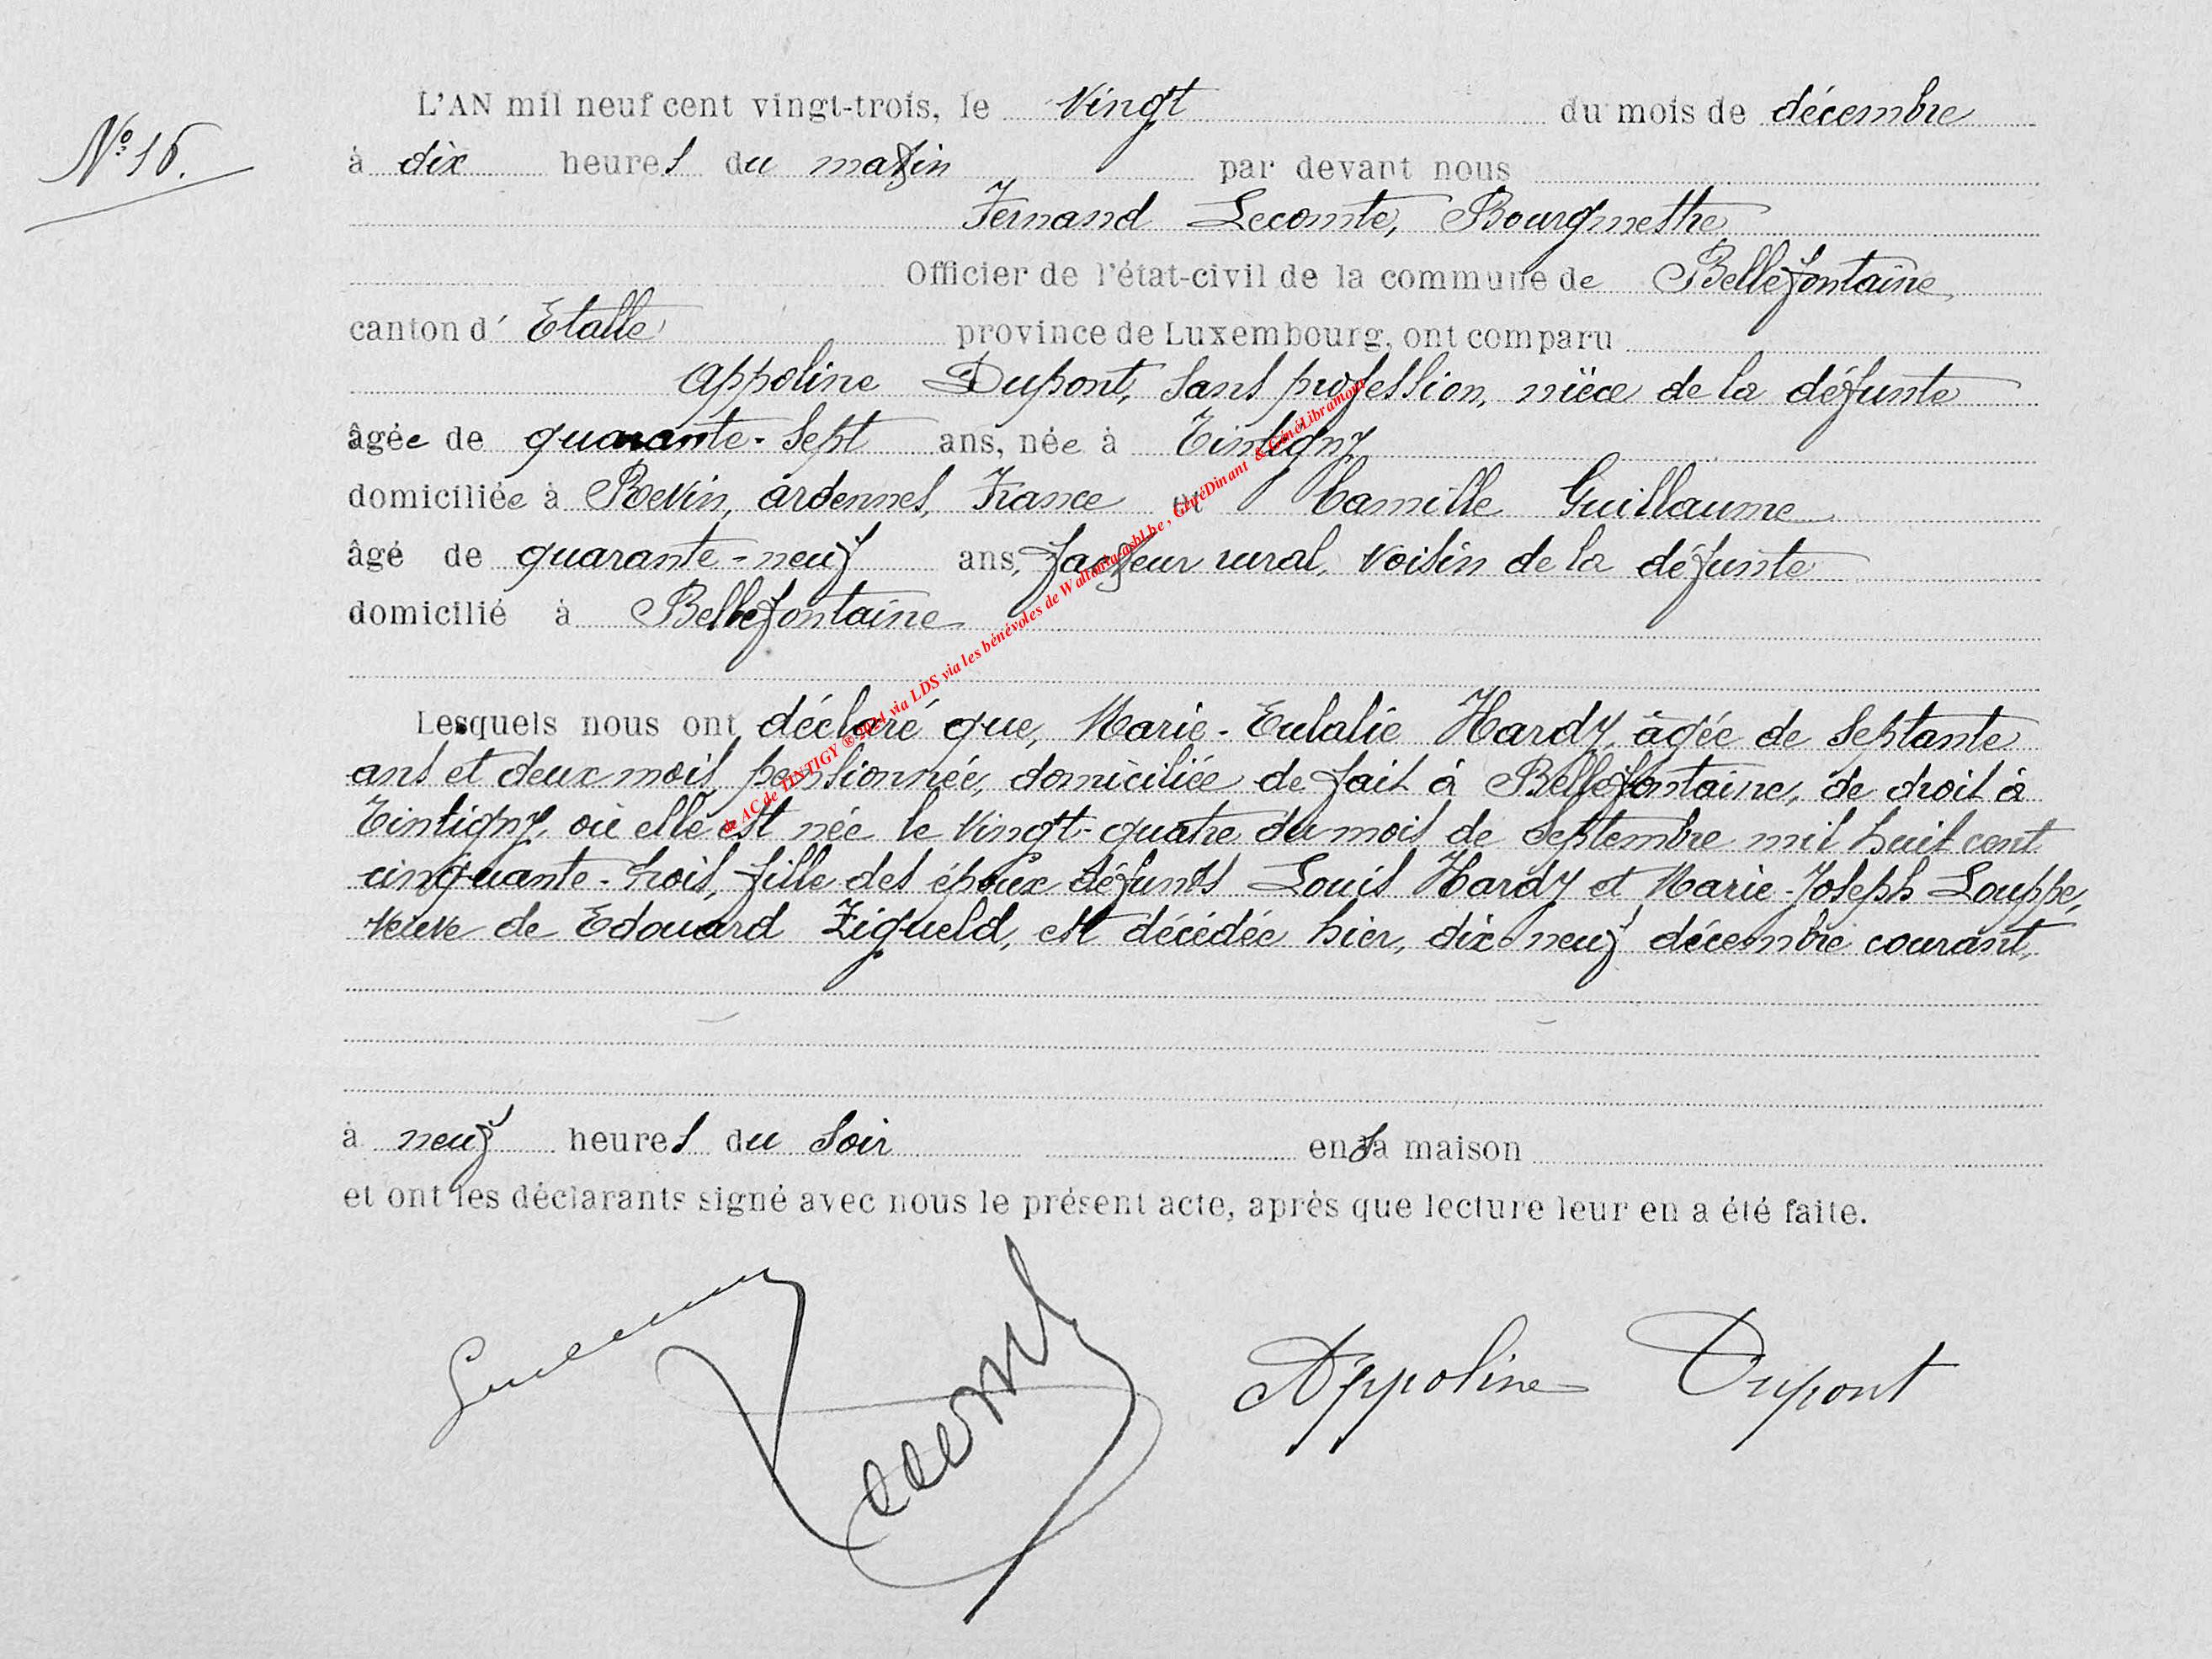 N° 16.
L'AN mil neuf cent vingt-trois, le vingt du mois de décembre
à dix heures du matin par devant nous
Fernand Lecomte, Bourgmestre
Officier de l'état-civil de la commune de Bellefontaine,
canton d' Etalle province de Luxembourg, ont comparu
Appoline Dupont, sans profession, nièce de la défunte
âgée de quarante-sept ans, née à Tintigny
domiciliée à Revin, ardennes, France et Camille Guillaume
âgé de quarante-neuf ans, facteur rural, voisin de la défunte
domicilié à Bellefontaine
Lesquels nous ont déclaré que, Marie-Eulalie Hardy, âgée de septante
ans et deux mois, pensionnée, domiciliée de fait à Bellefontaine, de droit à
Tintigny, où elle est née le vingt-quatre du mois de septembre mil huit cent
cinquante-trois, fille des époux défunts Louis Hardy et Marie-Joseph Louppe,
veuve de Edouard Ziqueld, est décédée hier, dix-neuf décembre courant,
à neuf heures du soir en sa maison
et ont les déclarants signé avec nous le présent acte, après que lecture leur en a été faite.
Lecomte
Appoline Dupont
de AC de TINTIGY ® 2024 via LDS via les bénévoles de Wallonia-asbl.be, GénéDinant & GénéLibramont